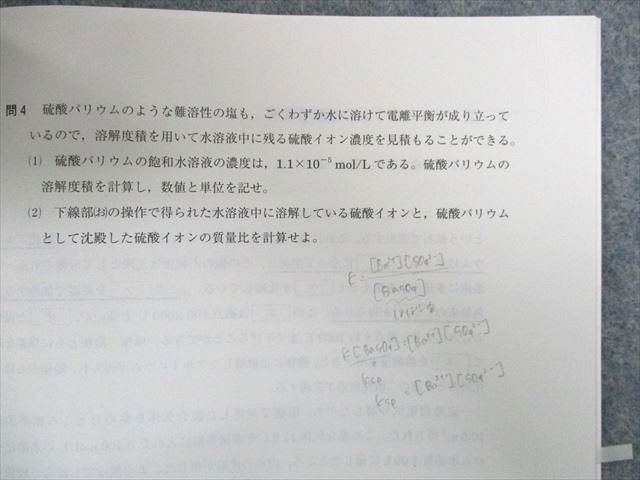 問4 硫酸バリウムのような難溶性の塩も，ごくわずか水に溶けて電離平衡が成り立って
いるので，溶解度積を用いて水溶液中に残る硫酸イオン濃度を見積もることができる。
(1) 硫酸バリウムの飽和水溶液の濃度は，1.1×10⁻⁵ mol/L である。硫酸バリウムの
溶解度積を計算し，数値と単位を記せ。
(2) 下線部(お)の操作で得られた水溶液中に溶解している硫酸イオンと，硫酸バリウム
として沈殿した硫酸イオンの質量比を計算せよ。
K = [Ba²⁺][SO₄²⁻]
[BaSO₄]
K[BaSO₄] = [Ba²⁺][SO₄²⁻]
Ksp
Ksp = [Ba²⁺][SO₄²⁻]